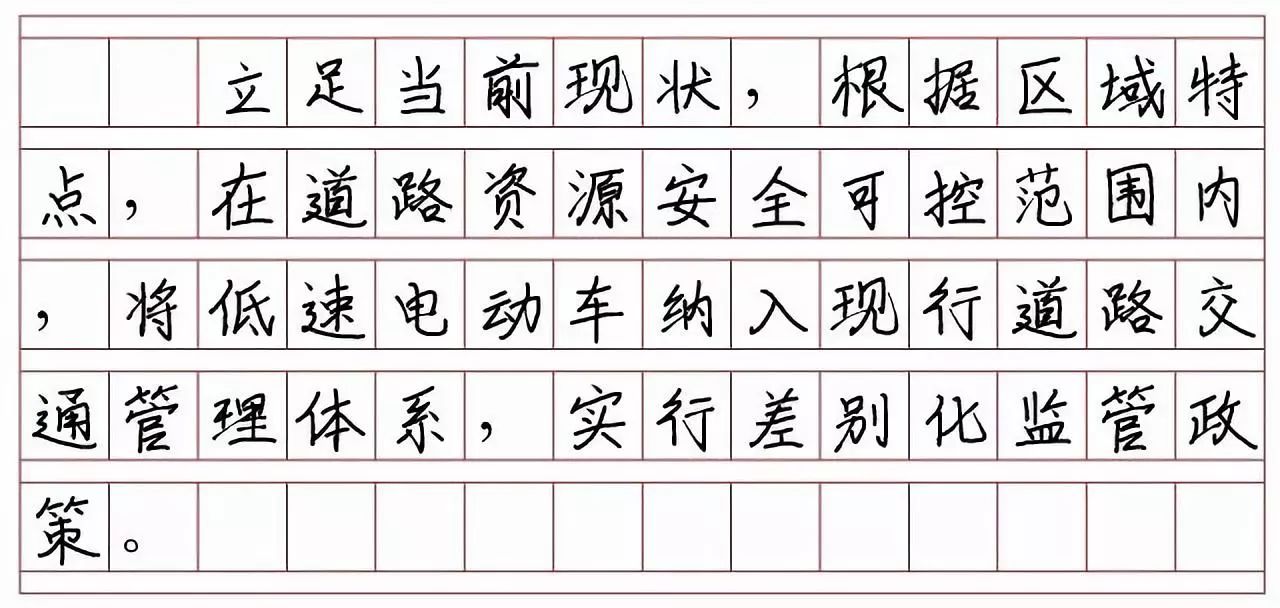 立足当前现状，根据区域特
点，在道路资源安全可控范围内
，将低速电动车纳入现行道路交
通管理体系，实行差别化监管政
策。